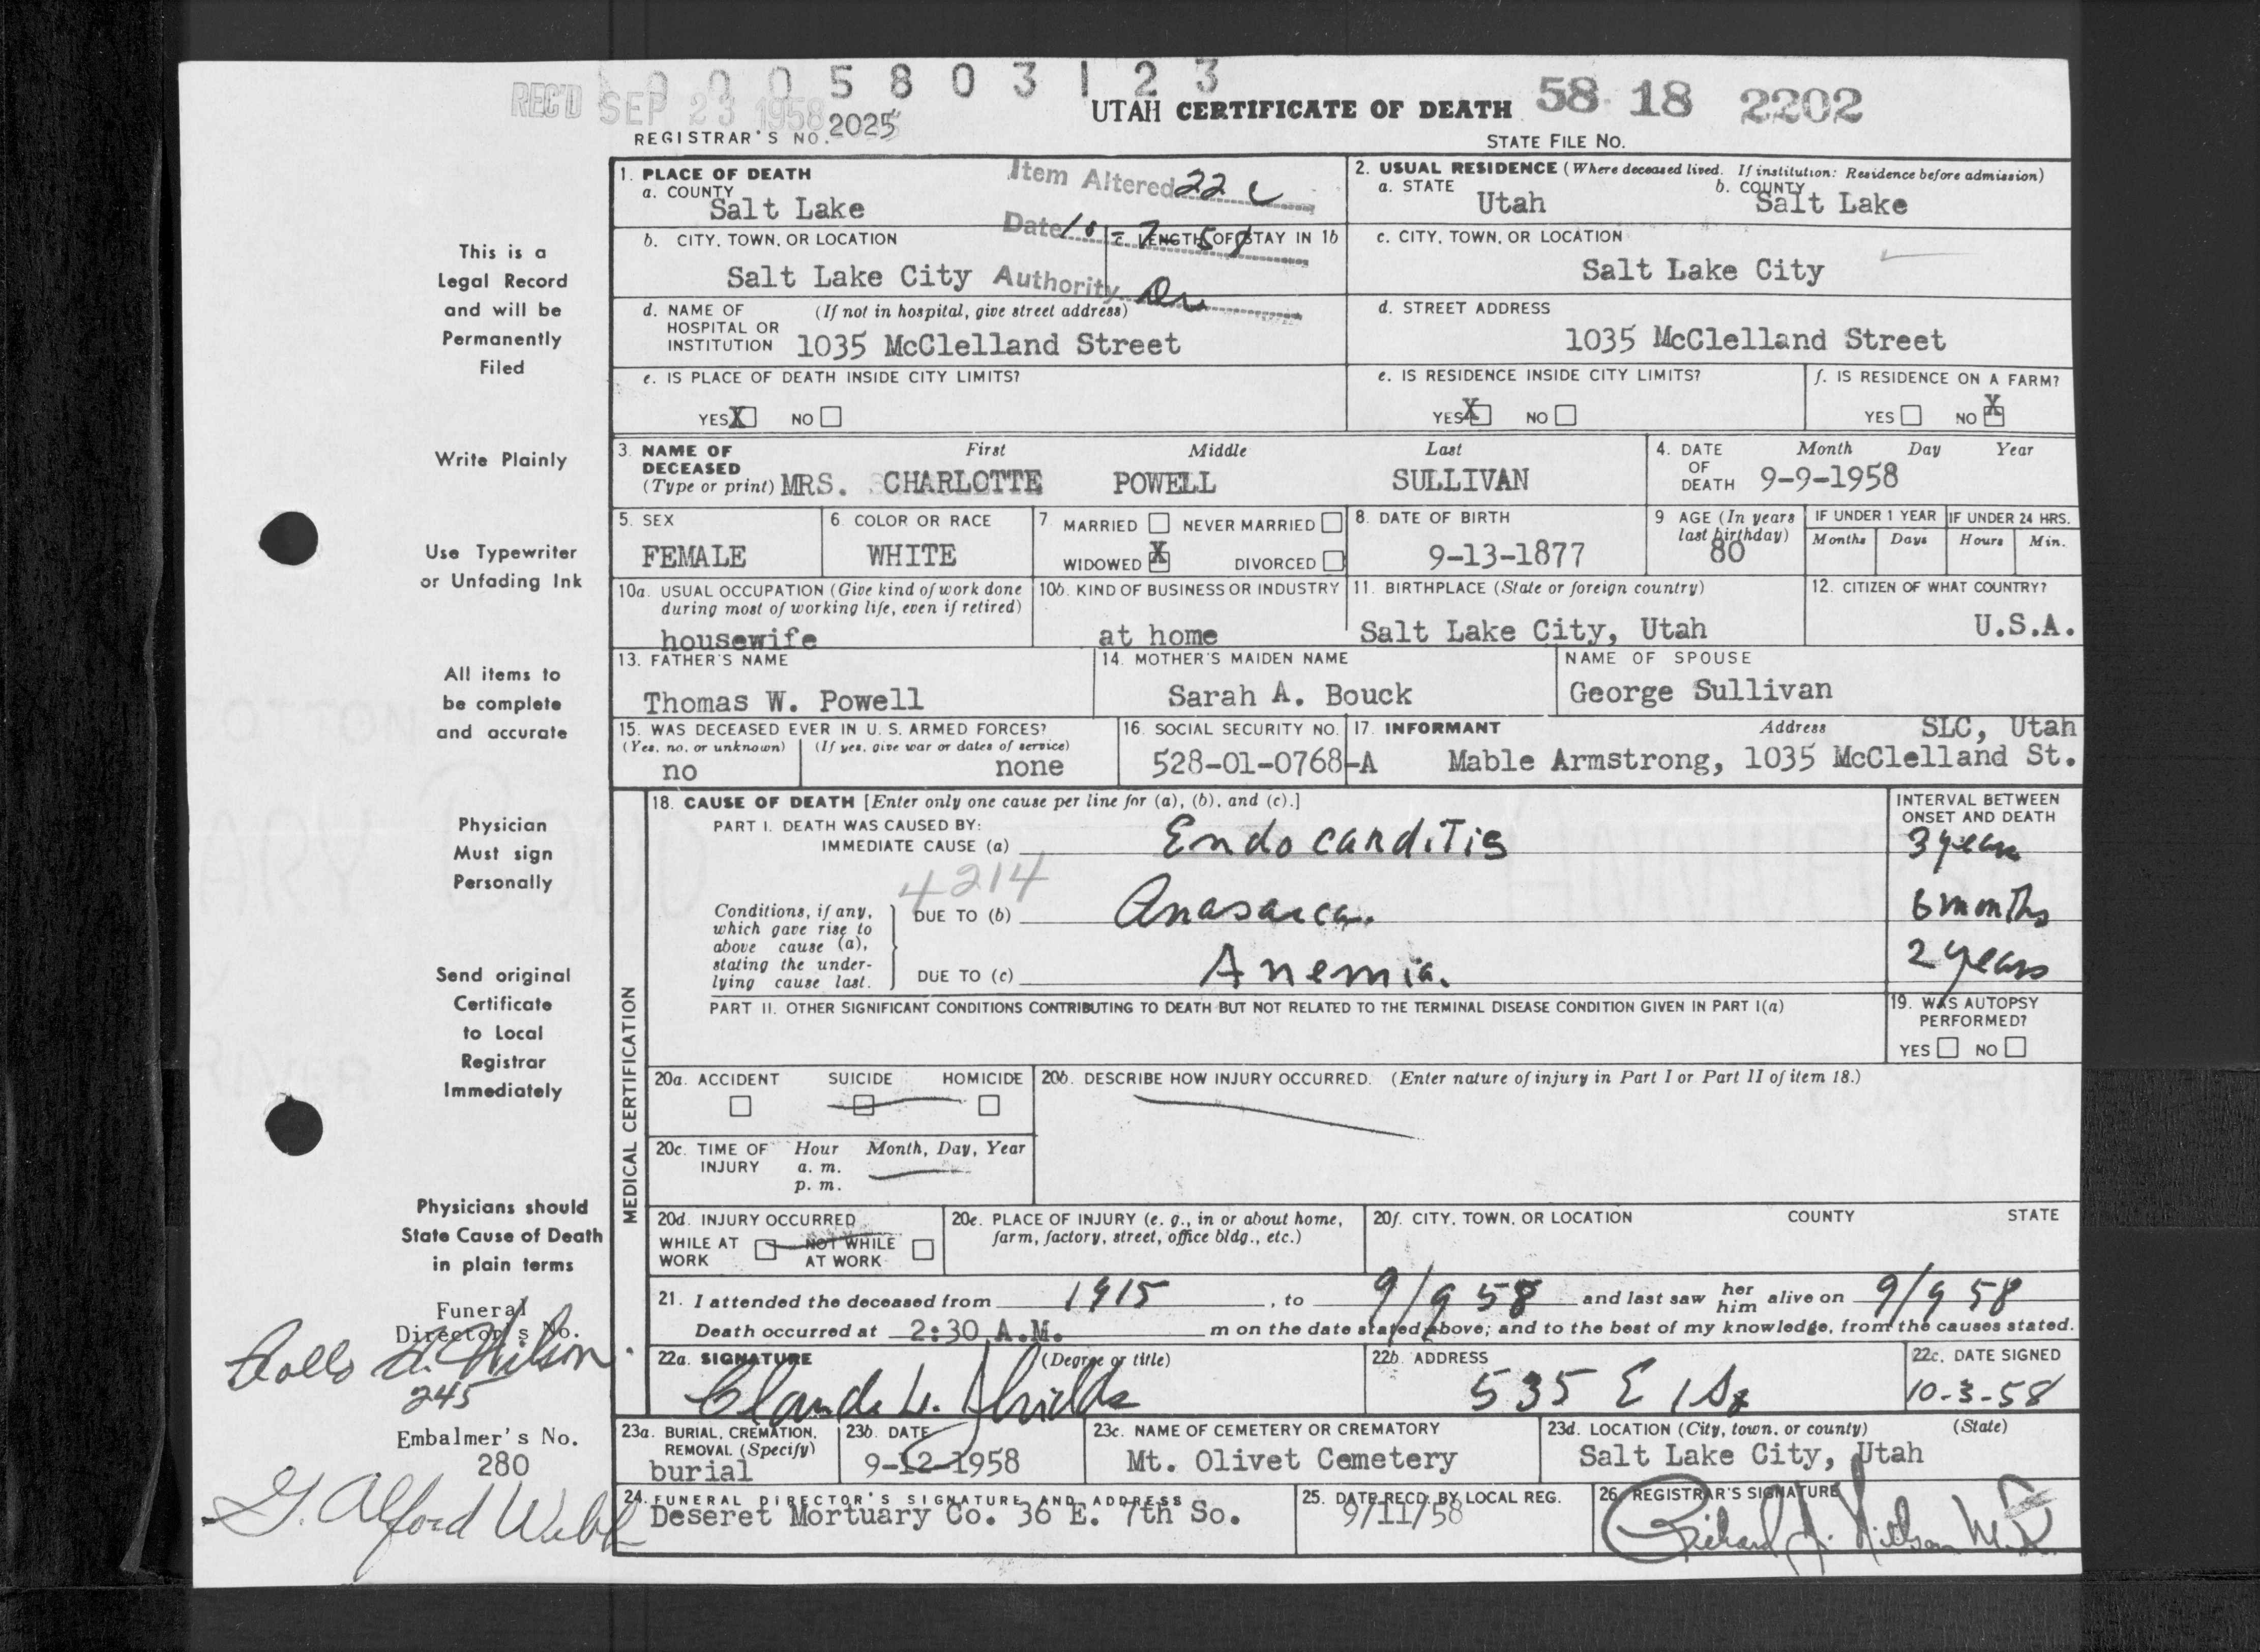 0 0 0 5 8 0 3 1 2 3
REC'D SEP 23 1958
REGISTRAR'S NO. 2025
UTAH CERTIFICATE OF DEATH 58 18 2202
STATE FILE NO.
This is a
Legal Record
and will be
Permanently
Filed
Write Plainly
Use Typewriter
or Unfading Ink
All items to
be complete
and accurate
Physician
Must sign
Personally
Send original
Certificate
to Local
Registrar
Immediately
Physicians should
State Cause of Death
in plain terms
Funeral
Director's No.
Rollo H. Wilson
245
Embalmer's No.
280
G. Alford Webb
1. PLACE OF DEATH
a. COUNTY
Salt Lake
Item Altered 22 c
Date 10-7-58
Authority Dr
b. CITY, TOWN, OR LOCATION
Salt Lake City
c. LENGTH OF STAY IN 1b
d. NAME OF HOSPITAL OR INSTITUTION (If not in hospital, give street address)
1035 McClelland Street
e. IS PLACE OF DEATH INSIDE CITY LIMITS?
YES X NO
2. USUAL RESIDENCE (Where deceased lived. If institution: Residence before admission)
a. STATE b. COUNTY
Utah Salt Lake
c. CITY, TOWN, OR LOCATION
Salt Lake City
d. STREET ADDRESS
1035 McClelland Street
e. IS RESIDENCE INSIDE CITY LIMITS?
YES X NO
f. IS RESIDENCE ON A FARM?
YES NO X
3. NAME OF DECEASED (Type or print) First Middle Last
MRS. CHARLOTTE POWELL SULLIVAN
4. DATE OF DEATH Month Day Year
9-9-1958
5. SEX
FEMALE
6. COLOR OR RACE
WHITE
7. MARRIED NEVER MARRIED
WIDOWED X DIVORCED
8. DATE OF BIRTH
9-13-1877
9 AGE (In years last birthday)
80
IF UNDER 1 YEAR
Months Days
IF UNDER 24 HRS.
Hours Min.
10a. USUAL OCCUPATION (Give kind of work done during most of working life, even if retired)
housewife
10b. KIND OF BUSINESS OR INDUSTRY
at home
11. BIRTHPLACE (State or foreign country)
Salt Lake City, Utah
12. CITIZEN OF WHAT COUNTRY?
U.S.A.
13. FATHER'S NAME
Thomas W. Powell
14. MOTHER'S MAIDEN NAME
Sarah A. Bouck
NAME OF SPOUSE
George Sullivan
15. WAS DECEASED EVER IN U. S. ARMED FORCES?
(Yes, no, or unknown) (If yes, give war or dates of service)
no none
16. SOCIAL SECURITY NO.
528-01-0768-A
17. INFORMANT Address SLC, Utah
Mable Armstrong, 1035 McClelland St.
MEDICAL CERTIFICATION
18. CAUSE OF DEATH [Enter only one cause per line for (a), (b), and (c).]
INTERVAL BETWEEN ONSET AND DEATH
PART I. DEATH WAS CAUSED BY:
IMMEDIATE CAUSE (a) Endocarditis 3 years
4214
Conditions, if any, which gave rise to above cause (a), stating the underlying cause last.
DUE TO (b) Anasarca. 6 months
DUE TO (c) Anemia. 2 years
PART II. OTHER SIGNIFICANT CONDITIONS CONTRIBUTING TO DEATH BUT NOT RELATED TO THE TERMINAL DISEASE CONDITION GIVEN IN PART I(a)
19. WAS AUTOPSY PERFORMED?
YES NO
20a. ACCIDENT SUICIDE HOMICIDE
20b. DESCRIBE HOW INJURY OCCURRED. (Enter nature of injury in Part I or Part II of item 18.)
20c. TIME OF INJURY Hour Month, Day, Year
a. m.
p. m.
20d. INJURY OCCURRED
WHILE AT WORK NOT WHILE AT WORK
20e. PLACE OF INJURY (e. g., in or about home, farm, factory, street, office bldg., etc.)
20f. CITY, TOWN, OR LOCATION COUNTY STATE
21. I attended the deceased from 1915, to 9/9 58 and last saw her him alive on 9/9 58
Death occurred at 2:30 A.M. m on the date stated above; and to the best of my knowledge, from the causes stated.
22a. SIGNATURE (Degree or title)
Claude L. Shields
22b. ADDRESS
535 E 1 So
22c. DATE SIGNED
10-3-58
23a. BURIAL, CREMATION, REMOVAL (Specify)
burial
23b. DATE
9-12-1958
23c. NAME OF CEMETERY OR CREMATORY
Mt. Olivet Cemetery
23d. LOCATION (City, town, or county) (State)
Salt Lake City, Utah
24. FUNERAL DIRECTOR'S SIGNATURE AND ADDRESS
Deseret Mortuary Co. 36 E. 7th So.
25. DATE RECD. BY LOCAL REG.
9/11/58
26. REGISTRAR'S SIGNATURE
Richard J. Nielson M.D.